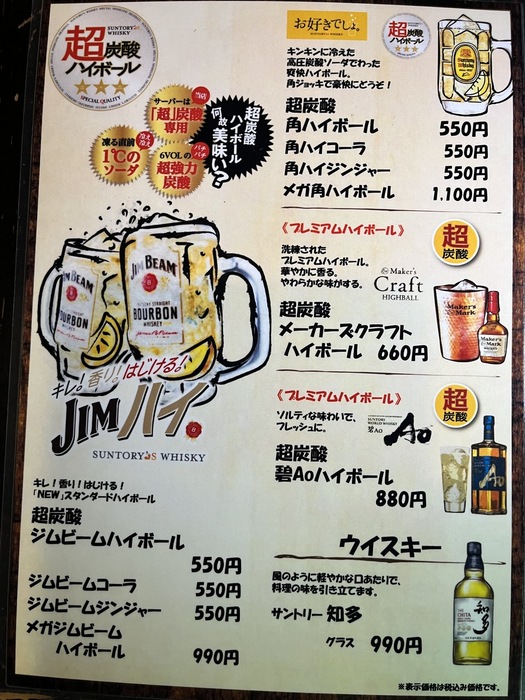 SUNTORY WHISKY
超炭酸
ハイボール
SPECIAL QUALITY
当店
サーバーは
「超」炭酸
専用
凍る直前
冷え冷え
1℃の
ソーダ
6VOLの
パチパチ
超強力
炭酸
超炭酸
ハイボール
何故
美味いっ?
JIM BEAM
BOURBON
JIM BEAM
KENTUCKY STRAIGHT
BOURBON
WHISKEY
キレ!香り!はじける!
JIMハイ
SUNTORY'S WHISKY
キレ!香り!はじける!
「NEW」スタンダードハイボール
超炭酸
ジムビームハイボール
550円
ジムビームコーラ 550円
ジムビームジンジャー 550円
メガジムビーム
ハイボール 990円
お好きでしょ。
超炭酸
ハイボール
キンキンに冷えた
高圧炭酸ソーダでわった
爽快ハイボール。
角ジョッキで豪快にどうぞ!
超炭酸
角ハイボール 550円
角ハイコーラ 550円
角ハイジンジャー 550円
メガ角ハイボール 1,100円
《プレミアムハイボール》
超
炭酸
洗練された
プレミアムハイボール。
華やかに香る。
やわらかな味がする。
the Maker's
Craft
HIGHBALL
Maker's
Mark
Maker's
Mark
超炭酸
メーカーズクラフト
ハイボール 660円
《プレミアムハイボール》
超
炭酸
ソルティな味わいで、
フレッシュに。
SUNTORY
WORLD WHISKY
碧Ao
Ao
Ao
超炭酸
碧Aoハイボール
880円
ウイスキー
風のように軽やかな口あたりで、
料理の味を引き立てます。
サントリー 知多
グラス 990円
THE
CHITA
知多
※表示価格は税込み価格です。